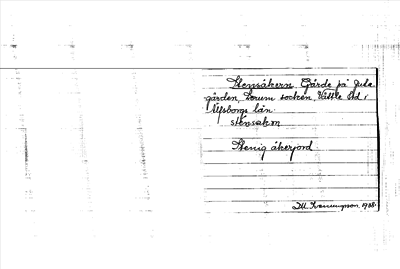 Stensåkern, Gärde på Jula
gården, Lerum socken, Vättle hd,
Älfsborgs län.
stensakən
Stenig åkerjord
1908.